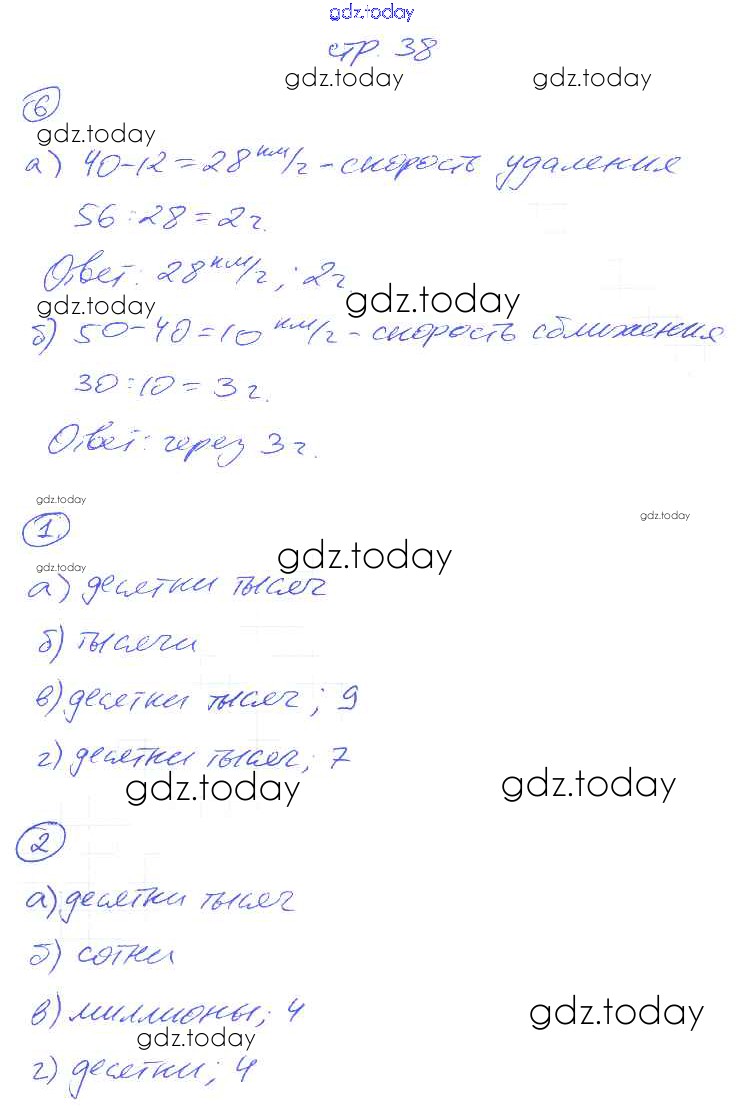 gdz.today
стр. 38
gdz.today gdz.today
6
gdz.today
а) 40-12=28 км/ч - скорость удаления
56:28=2ч.
Ответ: 28 км/ч; 2ч.
gdz.today gdz.today
б) 50-40=10 км/ч - скорость сближения
30:10=3ч.
Ответ: через 3ч.
gdz.today
gdz.today
1.
gdz.today
gdz.today
а) десятки тысяч
б) тысячи
в) десятки тысяч; 9
г) десятки тысяч; 7
gdz.today gdz.today
2
а) десятки тысяч
б) сотни
в) миллионы; 4
gdz.today
gdz.today
г) десятки; 4